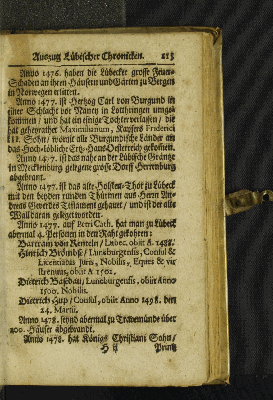 Auszug Lübischer Chronicken. 115
Anno 1476. haben die Lübecker grosse Feuer-
Schaden an ihren Häusern und Gärten zu Bergen
in Norwegen erlitten.
Anno 1477. ist Hertzog Carl von Burgund in
einer Schlacht vor Nancy in Lothringen umge-
kommen / und hat ein einige Tochter verlassen / die
hat geheyrathet Maximilianum, Kaysers Friderici
III. Sohn / wordurch alle Burgundische Länder an
das Hoch-löbliche Ertz-Haus Oesterreich gekommen.
Anno 1477. ist das nahe an der Lübische Gräntze
in Mecklenburg gelegene grosse Dorff Herrenburg
abgebrant.
Anno 1477. ist das alte Holsten-Thor zu Lübeck
mit den beyden runden Thürmen aus Herrn An-
dreas Geverdes Testament gebauet / und ist der alte
Wall daran geleget worden.
Anno 1477. auff Petri Cath. hat man zu Lübeck
abermal 4. Personen in den Raht gekohren:
Bartram von Renteln / Lubec. obiit A. 1488.
Hinrich Brömbse / Luneburgensis, Consul &
Licentiatus Juris, Nobilis, Eques & vir
strenuus, obiit A 1502.
Dieterich Basedau, Luneburgensis, obiit Anno
1500. Nobilis.
Dieterich Hup / Consul, obiit Anno 1498. den
24. Martii.
Anno 1478. seynd abermal zu Travemünde über
200. Häuser abgebrandt.
Anno 1478. hat Königs Christiani Sohn /
H ij Printz